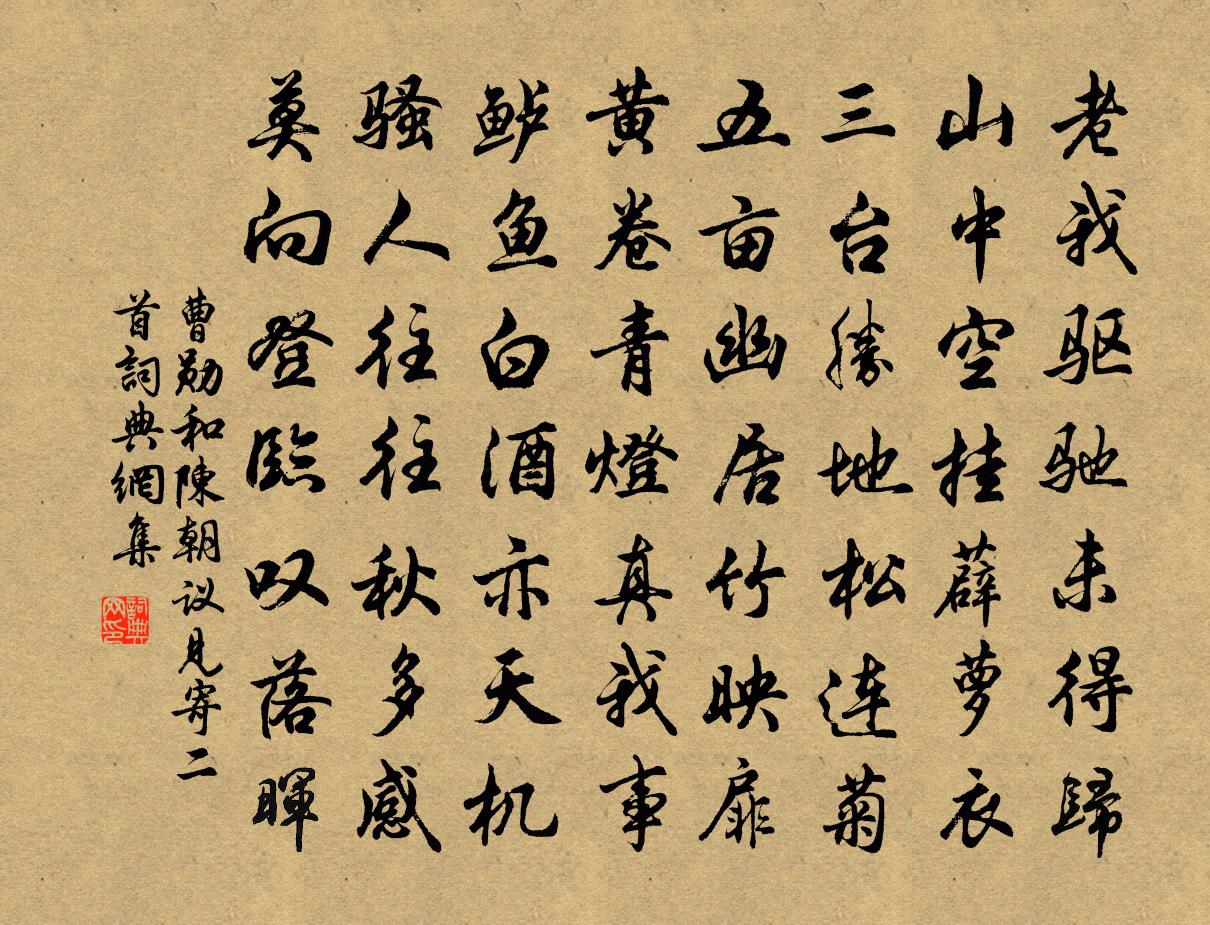 老我驱驰未得歸
山中空挂薜萝衣
三台勝地松连菊
五亩幽居竹映扉
黄卷青燈真我事
鲈鱼白酒亦天机
骚人往往秋多感
莫向登臨叹落暉
曹勋和陳朝议見寄二
首詞典網集
詞典
网印